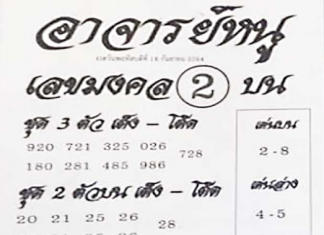 อาจารย์หนู
งวดวันพฤหัสบดีที่ 16 กันยายน 2564
เลขมงคล 2 บน
ชุด 3 ตัว เต็ง - โต๊ด
920 721 325 026
728
180 281 485 986
เด่นบน
2-8
ชุด 2 ตัวบน เต็ง - โต๊ด
20 21 25 26
28
เด่นล่าง
4-5